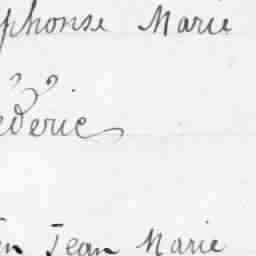 phonse Marie
éderic
en Jean Marie